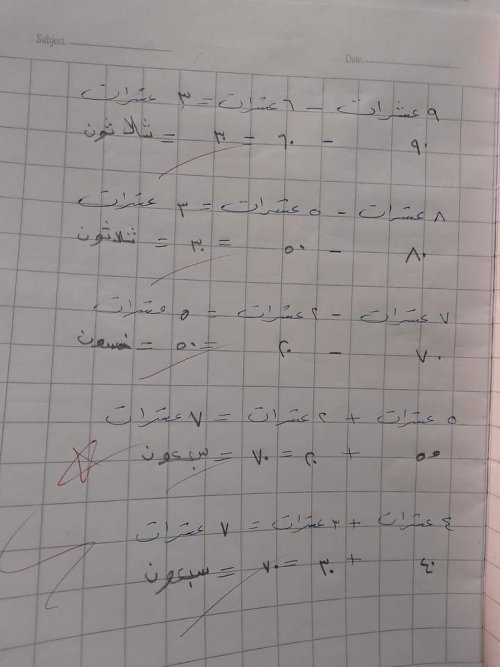 Subject.
Date
٩ عشرات - ٦ عشرات = ٣ عشرات
٩٠ - ٦٠ = ٣ = ثلاثون
٨ عشرات - ٥ عشرات = ٣ عشرات
٨٠ - ٥٠ = ٣٠ = ثلاثون
٧ عشرات - ٢ عشرات = ٥ عشرات
٧٠ - ٢٠ = ٥٠ = خمسون
٥ عشرات + ٢ عشرات = ٧ عشرات
٥٠ + ٢٠ = ٧٠ = سبعون
٤ عشرات + ٣ عشرات = ٧ عشرات
٤٠ + ٣٠ = ٧٠ = سبعون